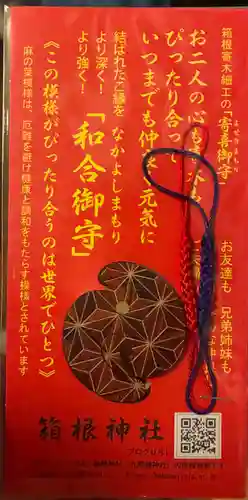 箱根寄木細工の「寄喜御守」
よせきまもり
お二人の心
ぴったり合って
いつまでも仲
元気に
お友達も
兄弟姉妹も
結ばれたご縁を
より深く!
より強く!
なかよしまもり
「和合御守」
《この模様がぴったり合うのは世界でひとつ》
麻の葉模様は、厄難を避け健康と調和をもたらす模様とされています
箱根神社